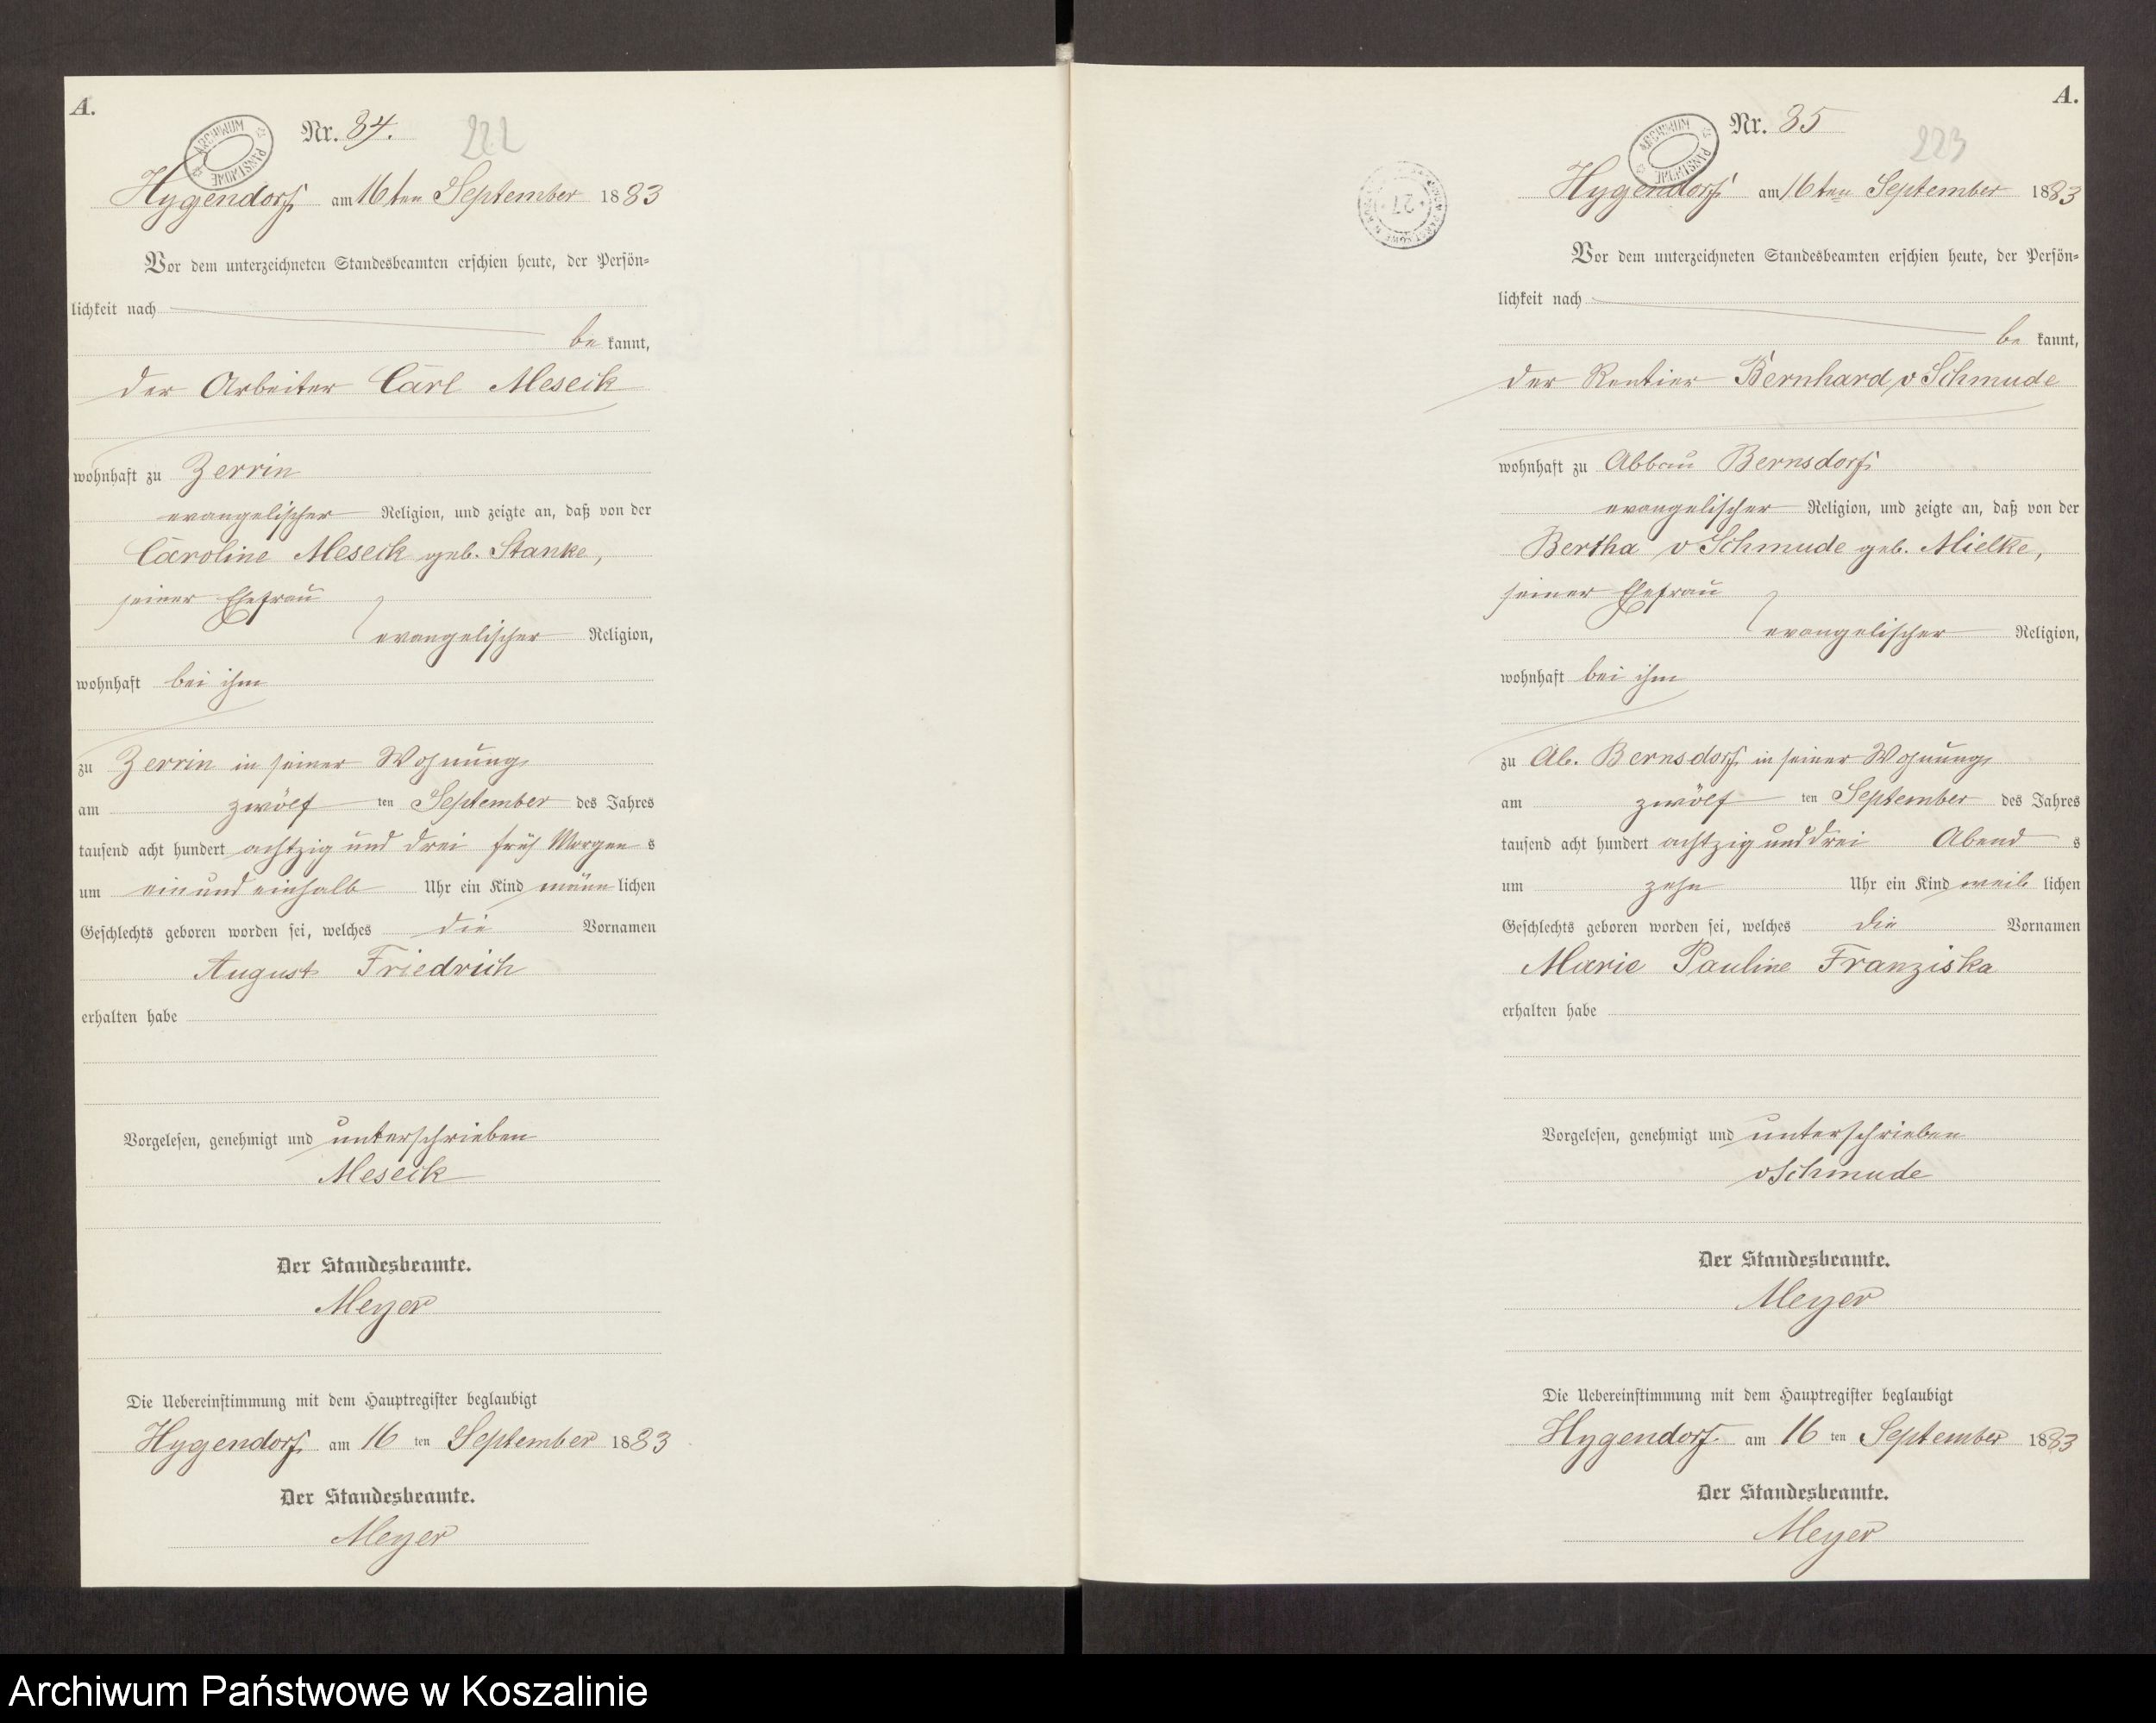 A.
Nr. 84.
222
ARCHIWUM PAŃSTWOWE
Hygendorf am 16ten September 1883
Vor dem unterzeichneten Standesbeamten erschien heute, der Persön-
lichkeit nach
be kannt,
der Arbeiter Carl Meseck
wohnhaft zu Zerrin
evangelischer Religion, und zeigte an, daß von der
Caroline Meseck geb. Stanke,
seiner Ehefrau
evangelischer Religion,
wohnhaft bei ihm
zu Zerrin in seiner Wohnung
am zwölf ten September des Jahres
tausend acht hundert achtzig und drei früh Morgen s
um ein und einhalb Uhr ein Kind männ lichen
Geschlechts geboren worden sei, welches die Vornamen
August Friedrich
erhalten habe
Vorgelesen, genehmigt und unterschrieben
Meseck
Der Standesbeamte.
Meyer
Die Uebereinstimmung mit dem Hauptregister beglaubigt
Hygendorf am 16 ten September 1883
Der Standesbeamte.
Meyer
A.
Nr. 85
223
ARCHIWUM PAŃSTWOWE
27
Hygendorf am 16ten September 1883
Vor dem unterzeichneten Standesbeamten erschien heute, der Persön-
lichkeit nach
be kannt,
der Rentier Bernhard v Schmude
wohnhaft zu Abbau Bernsdorf
evangelischer Religion, und zeigte an, daß von der
Bertha v Schmude geb. Mielke,
seiner Ehefrau
evangelischer Religion,
wohnhaft bei ihm
zu Ab. Bernsdorf in seiner Wohnung
am zwölf ten September des Jahres
tausend acht hundert achtzig und drei Abend s
um zehn Uhr ein Kind weib lichen
Geschlechts geboren worden sei, welches die Vornamen
Marie Pauline Franziska
erhalten habe
Vorgelesen, genehmigt und unterschrieben
vSchmude
Der Standesbeamte.
Meyer
Die Uebereinstimmung mit dem Hauptregister beglaubigt
Hygendorf am 16 ten September 1883
Der Standesbeamte.
Meyer
Archiwum Państwowe w Koszalinie